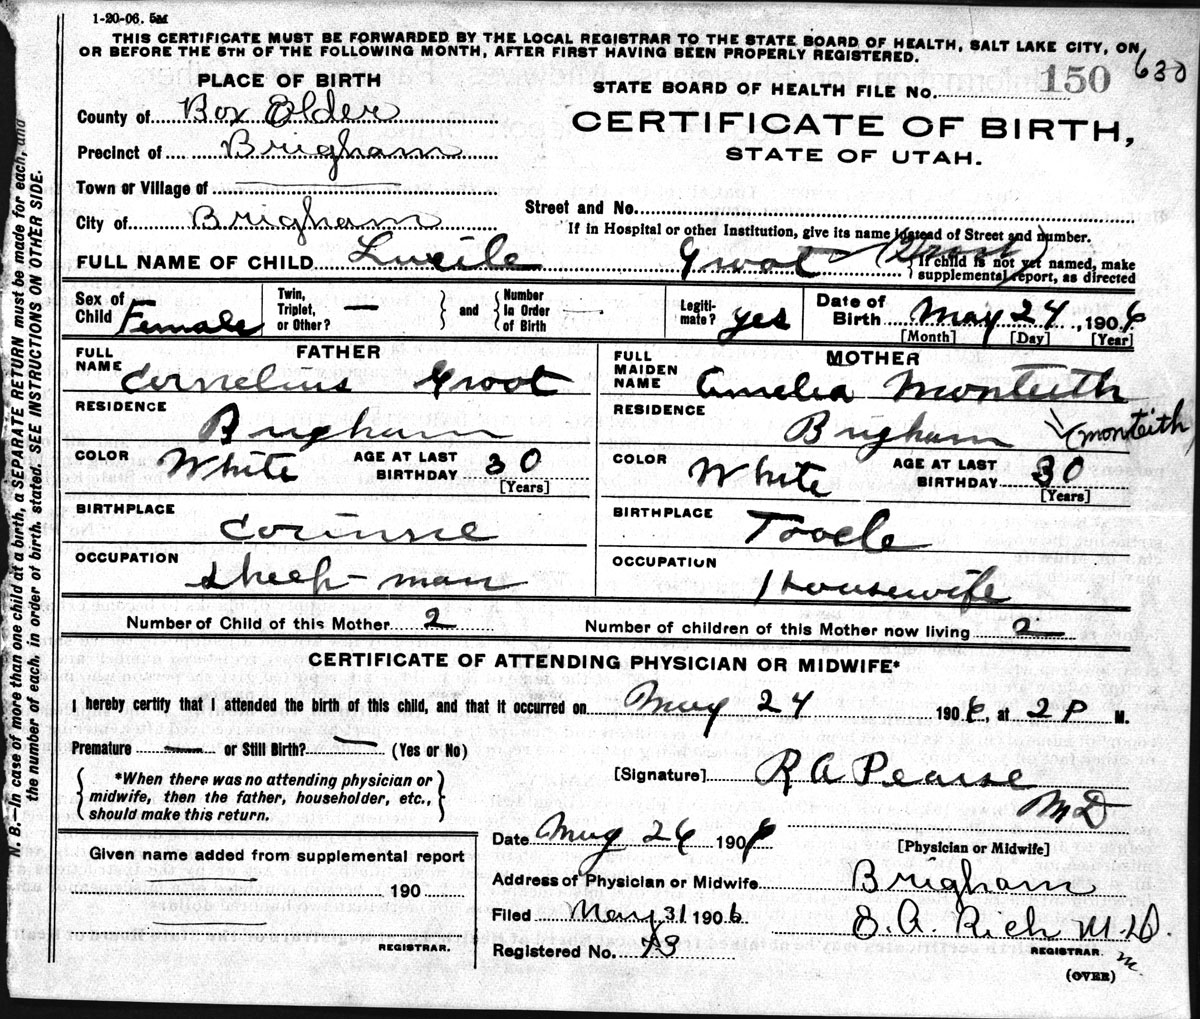 1-20-06. 5M
THIS CERTIFICATE MUST BE FORWARDED BY THE LOCAL REGISTRAR TO THE STATE BOARD OF HEALTH, SALT LAKE CITY, ON
OR BEFORE THE 5TH OF THE FOLLOWING MONTH, AFTER FIRST HAVING BEEN PROPERLY REGISTERED.
630
PLACE OF BIRTH
STATE BOARD OF HEALTH FILE NO. 150
County of Box Elder
CERTIFICATE OF BIRTH,
Precinct of Brigham
STATE OF UTAH.
Town or Village of
City of Brigham
Street and No.
If in Hospital or other Institution, give its name instead of Street and number.
FULL NAME OF CHILD Lucile Groot
If child is not yet named, make
supplemental report, as directed
Sex of Child Female
Twin, Triplet, or Other? — and Number In Order of Birth
Legiti-mate? yes
Date of Birth May 24, 1906
[Month] [Day] [Year]
FATHER
FULL NAME Cornelius Groot
RESIDENCE Brigham
COLOR White AGE AT LAST BIRTHDAY 30
[Years]
BIRTHPLACE Corinne
OCCUPATION Sheep-man
MOTHER
FULL MAIDEN NAME Amelia Monteith
RESIDENCE Brigham (Monteith)
COLOR White AGE AT LAST BIRTHDAY 30
[Years]
BIRTHPLACE Tooele
OCCUPATION Housewife
Number of Child of this Mother 2
Number of children of this Mother now living 2
CERTIFICATE OF ATTENDING PHYSICIAN OR MIDWIFE*
I hereby certify that I attended the birth of this child, and that it occurred on May 24 1906, at 2 P M.
Premature — or Still Birth? — (Yes or No)
*When there was no attending physician or
midwife, then the father, householder, etc.,
should make this return.
[Signature] R A Pearse
MD
[Physician or Midwife]
Date May 26 1906
Address of Physician or Midwife Brigham
Filed May 31 1906 E. A. Rich M.D.
REGISTRAR.
Registered No.
(OVER)
Given name added from supplemental report
190
REGISTRAR.
N. B.—In case of more than one child at a birth, a SEPARATE RETURN must be made for each, and
the number of each, in order of birth, stated. SEE INSTRUCTIONS ON OTHER SIDE.